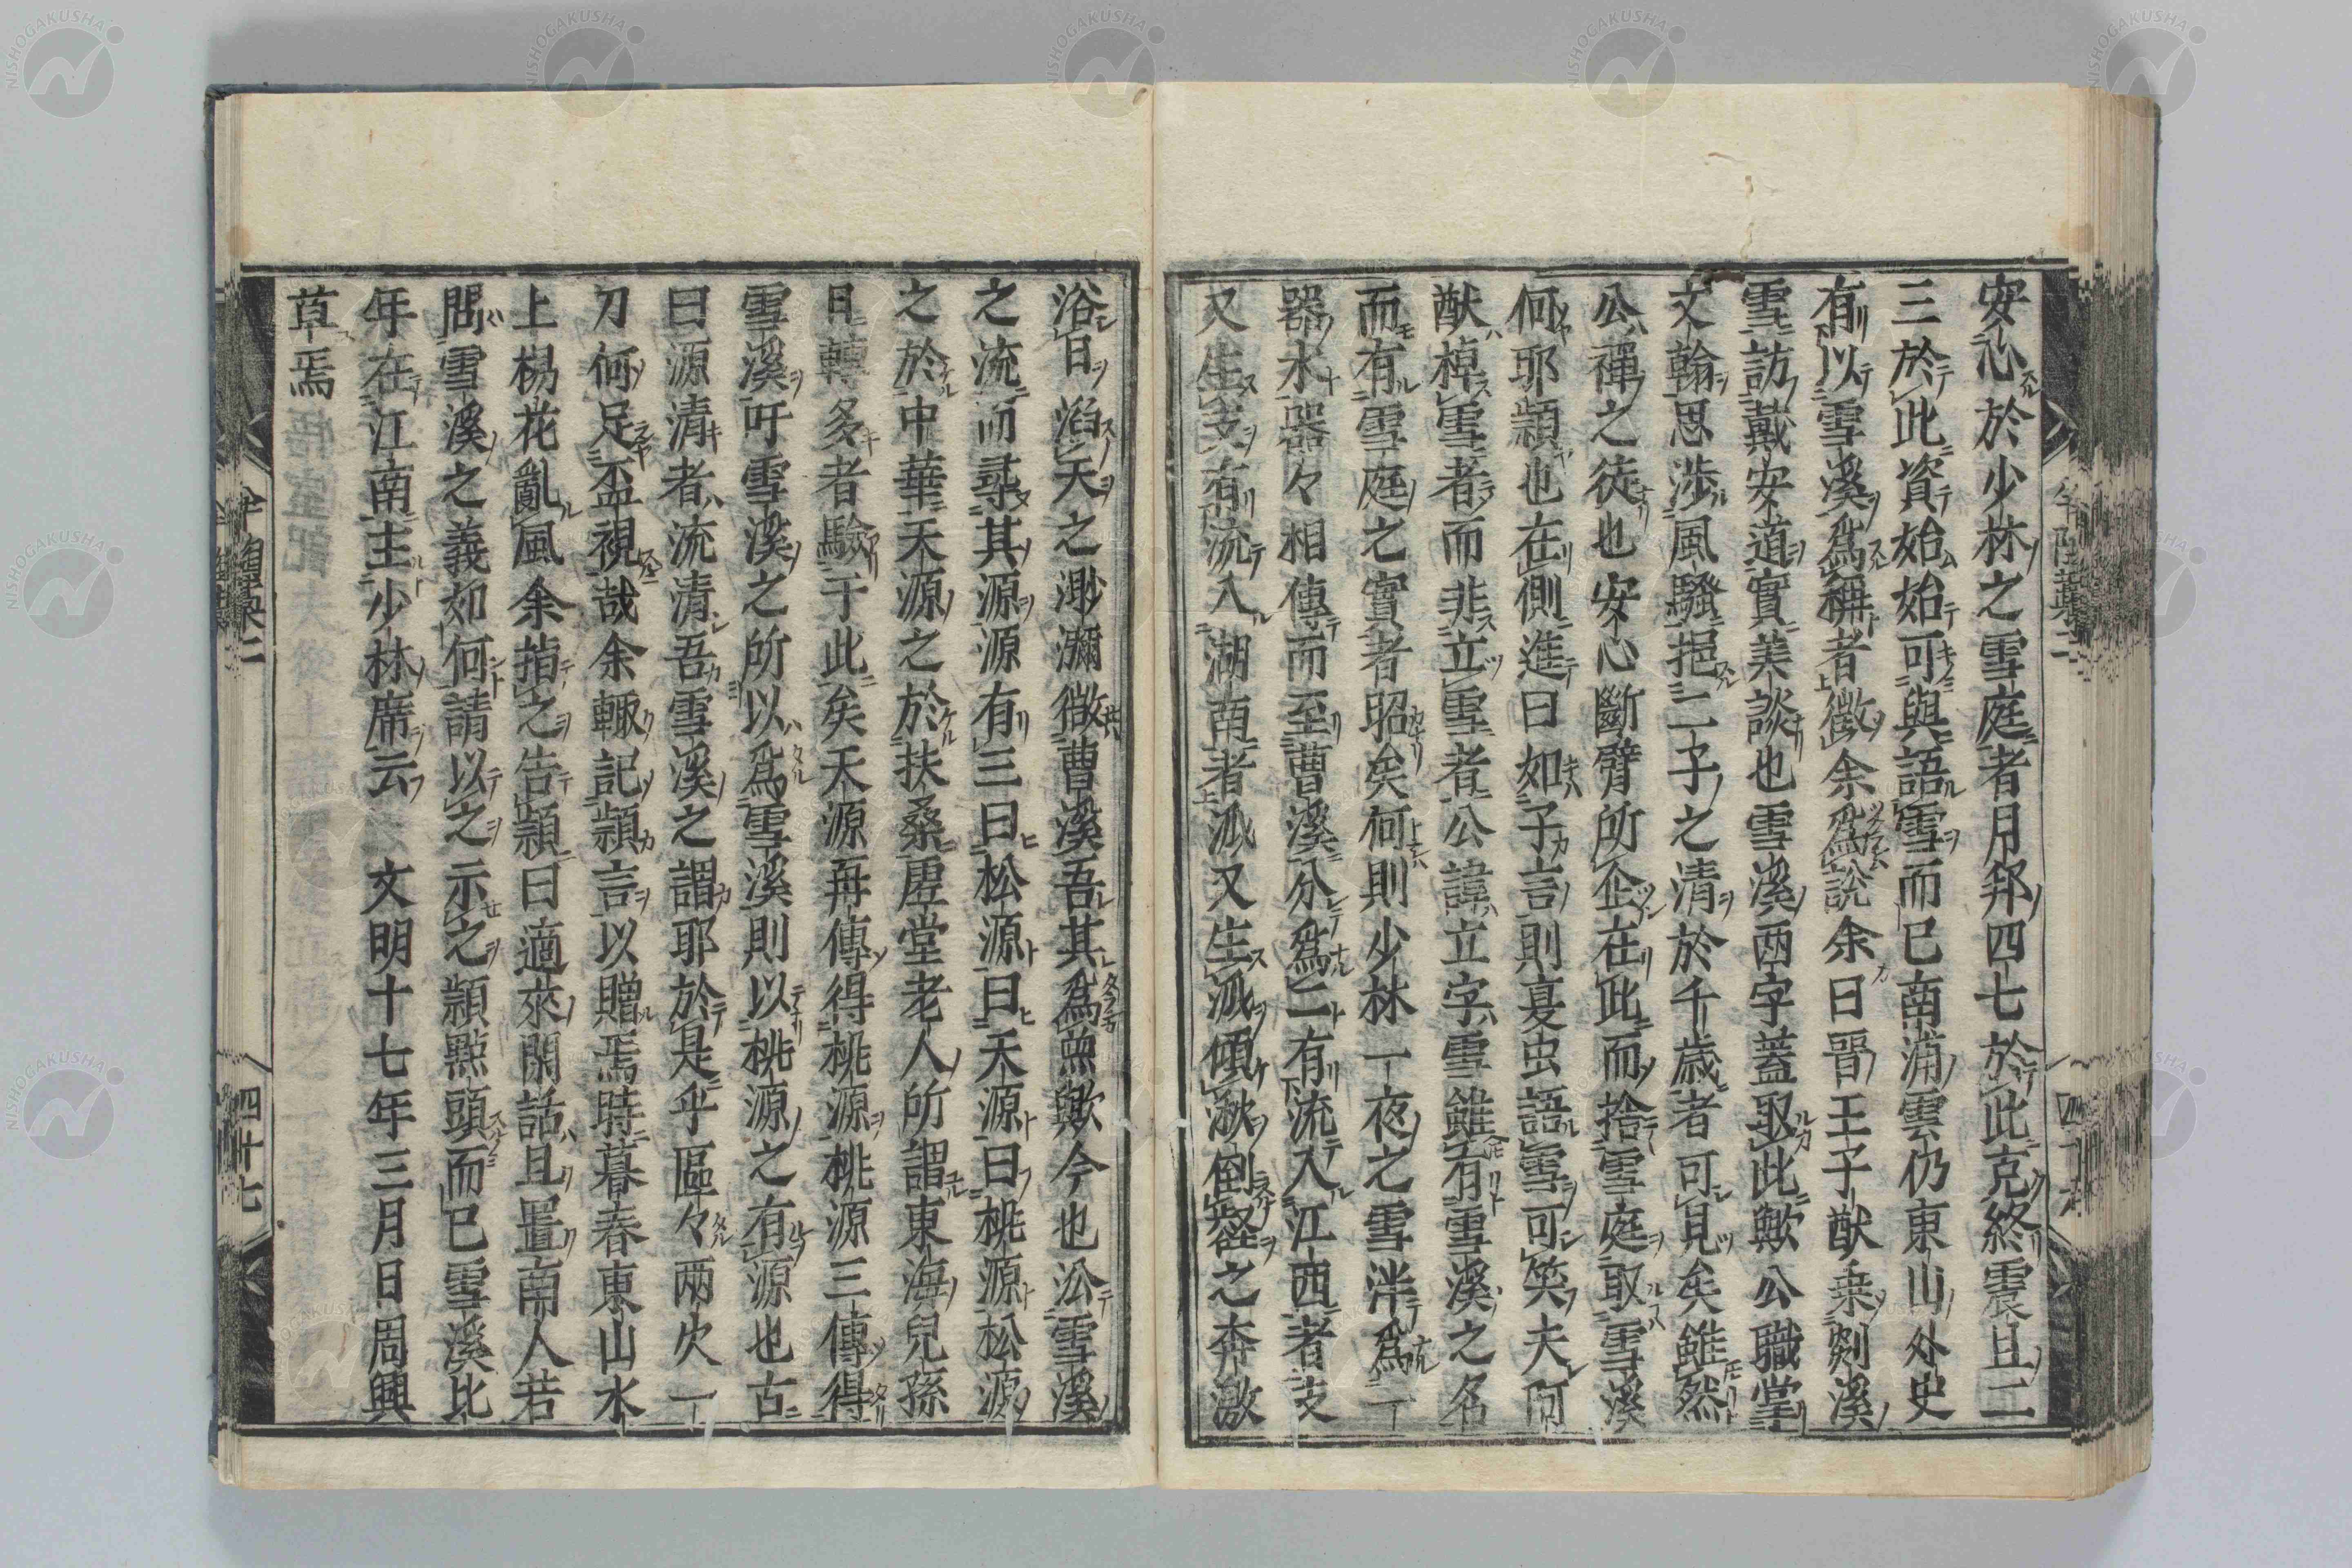 安心於少林之雪庭者月邦四七於此克終震旦二
三於此資始始可與語雪而已南浦雲仍東山外史
有以雪溪爲稱者徵余爲說余曰晉王子猷乗剡溪
雪訪戴安道實美談也雪溪兩字蓋取此歟公職掌
文翰思渉風騷挹二子之清於千歳者可見矣雖然
公禪之徒也安心斷臂所企在此而捨雪庭取雪溪
何耶頴也在側進曰如子言則夏虫語雪可笑夫阿
猷棹雪者而非立雪者公諱立字雪雖有雪溪之名
而有雪庭之實者昭矣何則少林一夜之雪泮爲一
器水器々相傳而至曹溪分爲二有流入江西者支
又生支有流入湖南者派又生派傾湫倒嶽之奔激
浴日滔天之渺瀰微曹溪吾其爲魚歟今也沿雪溪
之流而尋其源源有三曰松源曰天源曰桃源松源
之於中華天源之於扶桑虚堂老人所謂東海兒孫
日轉多者驗于此矣天源再傳得桃源桃源三傳得
雪溪吁雪溪之所以爲雪溪則以桃源之有源也古
曰源清者流清吾雪溪之謂耶於是乎區々兩火一
刀何足盃視哉余輙記頴言以贈焉時暮春東山水
上楊花亂風余指之告頴曰適來閑話且置南人若
問雪溪之義如何請以之示之頴點頭而已雪溪比
年在江南主少林席云　文明十七年三月日周興
草焉
四十七